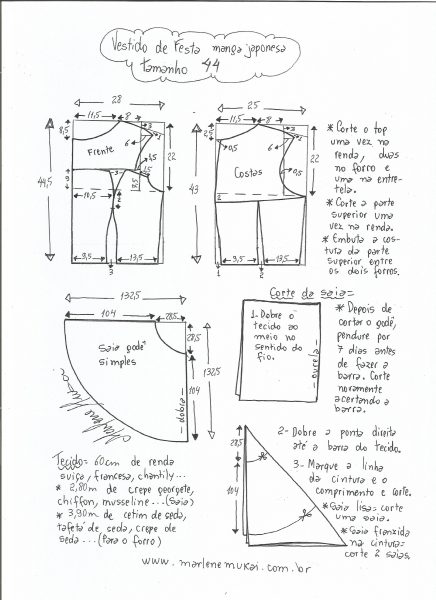 Vestido de Festa manga japonesa
tamanho 44
28
11,5
8
3
1
8,5
6
Frente
22
4,5
1,5
3
9
10,5
2
44,5
9,5
13,5
3
25
11,5
8
3
1
2
0,5
6
22
Costas
0,5
43
2
9,5
13,5
1
2
* Corte o top
uma vez na
renda, duas
no forro e
uma na entre-
tela.
* Corte a parte
superior uma
vez na renda.
* Embuta a cos-
tura da parte
superior entre
os dois forros.
132,5
104
28,5
28,5
Saia godê
simples
132,5
104
dobra
Marlene Mukai
Corte da saia=
1- Dobre o
tecido ao
meio no
sentido do
fio.
ourela
* Depois de
cortar o godê,
pendure por
7 dias antes
de fazer a
barra. Corte
novamente
acertando a
barra.
28,5
104
2- Dobre a ponta direita
até a barra do tecido.
3- Marque a linha
da cintura e o
comprimento e corte.
* Saia lisa= corte
uma saia.
* Saia franzida
na cintura=
corte 2 saias.
Tecido= 60cm de renda
suíça, francesa, chantily...
* 2,80m de crepe georgete,
chiffon, musseline...(saia)
* 3,90m de cetim de seda,
tafetá de seda, crepe de
seda...(Para o forro)
www.marlenemukai.com.br